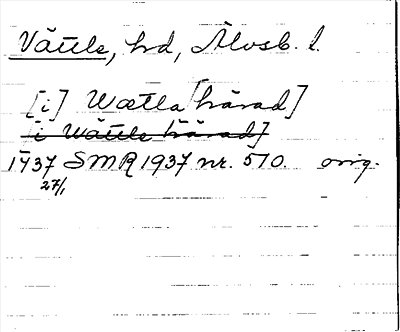 Vättle, hd, Älvsb. l.
[i] Wætla [härad]
[i Wättle härad]
1437 SMR 1937 nr. 510. orig.
27/1